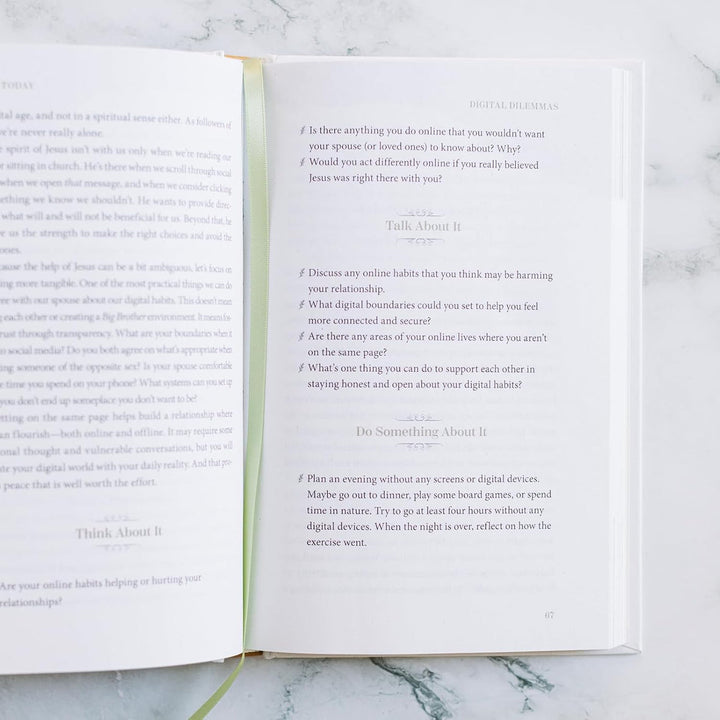 TODAY
ital age, and not in a spiritual sense either. As followers of
we're never really alone.
spirit of Jesus isn't with us only when we're reading our
r sitting in church. He's there when we scroll through social
when we open that message, and when we consider clicking
ething we know we shouldn't. He wants to provide direc-
what will and will not be beneficial for us. Beyond that, he
us the strength to make the right choices and avoid the
ones.
ause the help of Jesus can be a bit ambiguous, let's focus on
ing more tangible. One of the most practical things we can do
ee with our spouse about our digital habits. This doesn't mean
g each other or creating a Big Brother environment. It means
rust through transparency. What are your boundaries when it
n social media? Do you both agree on what's appropriate when
ing someone of the opposite sex? Is your spouse comfortable
e time you spend on your phone? What systems can you set up
you don't end up someplace you don't want to be?
etting on the same page helps build a relationship where
an flourish—both online and offline. It may require some
onal thought and vulnerable conversations, but you will
ate your digital world with your daily reality. And that
peace that is well worth the effort.
Think About It
Are your online habits helping or hurting your
relationships?
DIGITAL DILEMMAS
Is there anything you do online that you wouldn't want
your spouse (or loved ones) to know about? Why?
Would you act differently online if you really believed
Jesus was right there with you?
Talk About It
Discuss any online habits that you think may be harming
your relationship.
What digital boundaries could you set to help you feel
more connected and secure?
Are there any areas of your online lives where you aren't
on the same page?
What's one thing you can do to support each other in
staying honest and open about your digital habits?
Do Something About It
Plan an evening without any screens or digital devices.
Maybe go out to dinner, play some board games, or spend
time in nature. Try to go at least four hours without any
digital devices. When the night is over, reflect on how the
exercise went.
67